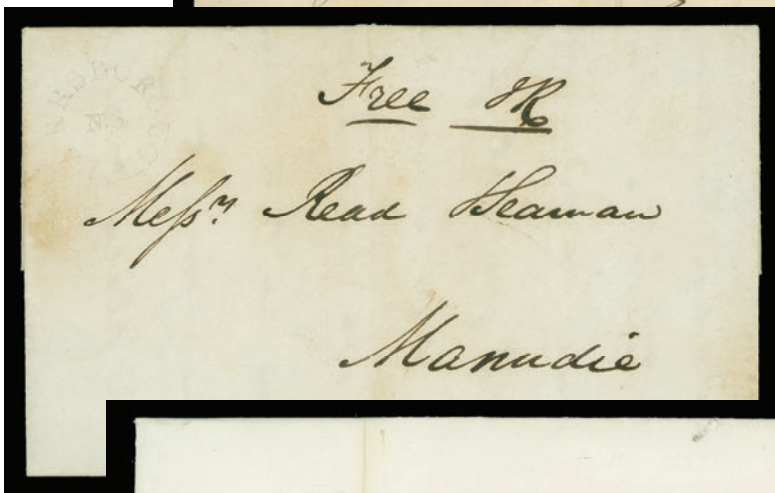 Free JR
Messrs Read Seaman
Manudie